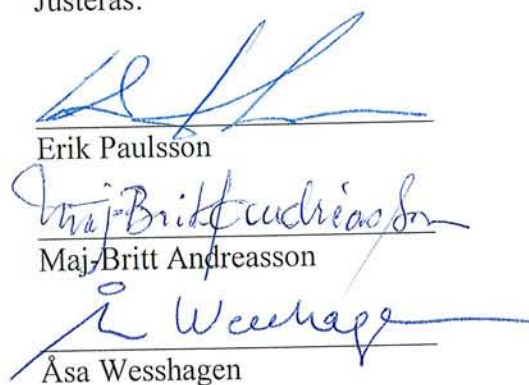 Justeras:
Erik Paulsson
Maj-Britt Andréasson
Maj-Britt Andreasson
Åsa Wesshagen